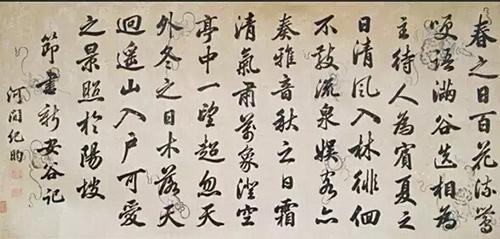 春之日百花流鶯
語滿谷迭相為
主待人為賓夏之
日清風入林徘徊
不散流泉娛客亦
奏雅音秋之日霜
清氣肅萬象澄空
亭中一望超忽天
外冬之日木落天
迴遙山入戶可愛
之景照於陽坡
節書新安谷記
河間紀昀